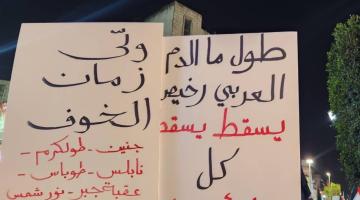 طول ما الدم
العربي رخيص
يسقط يسقط
كل
ولّى
زمان
الخوف
جنين - طولكرم -
نابلس - طوباس -
عقبة جبر - نور شمس